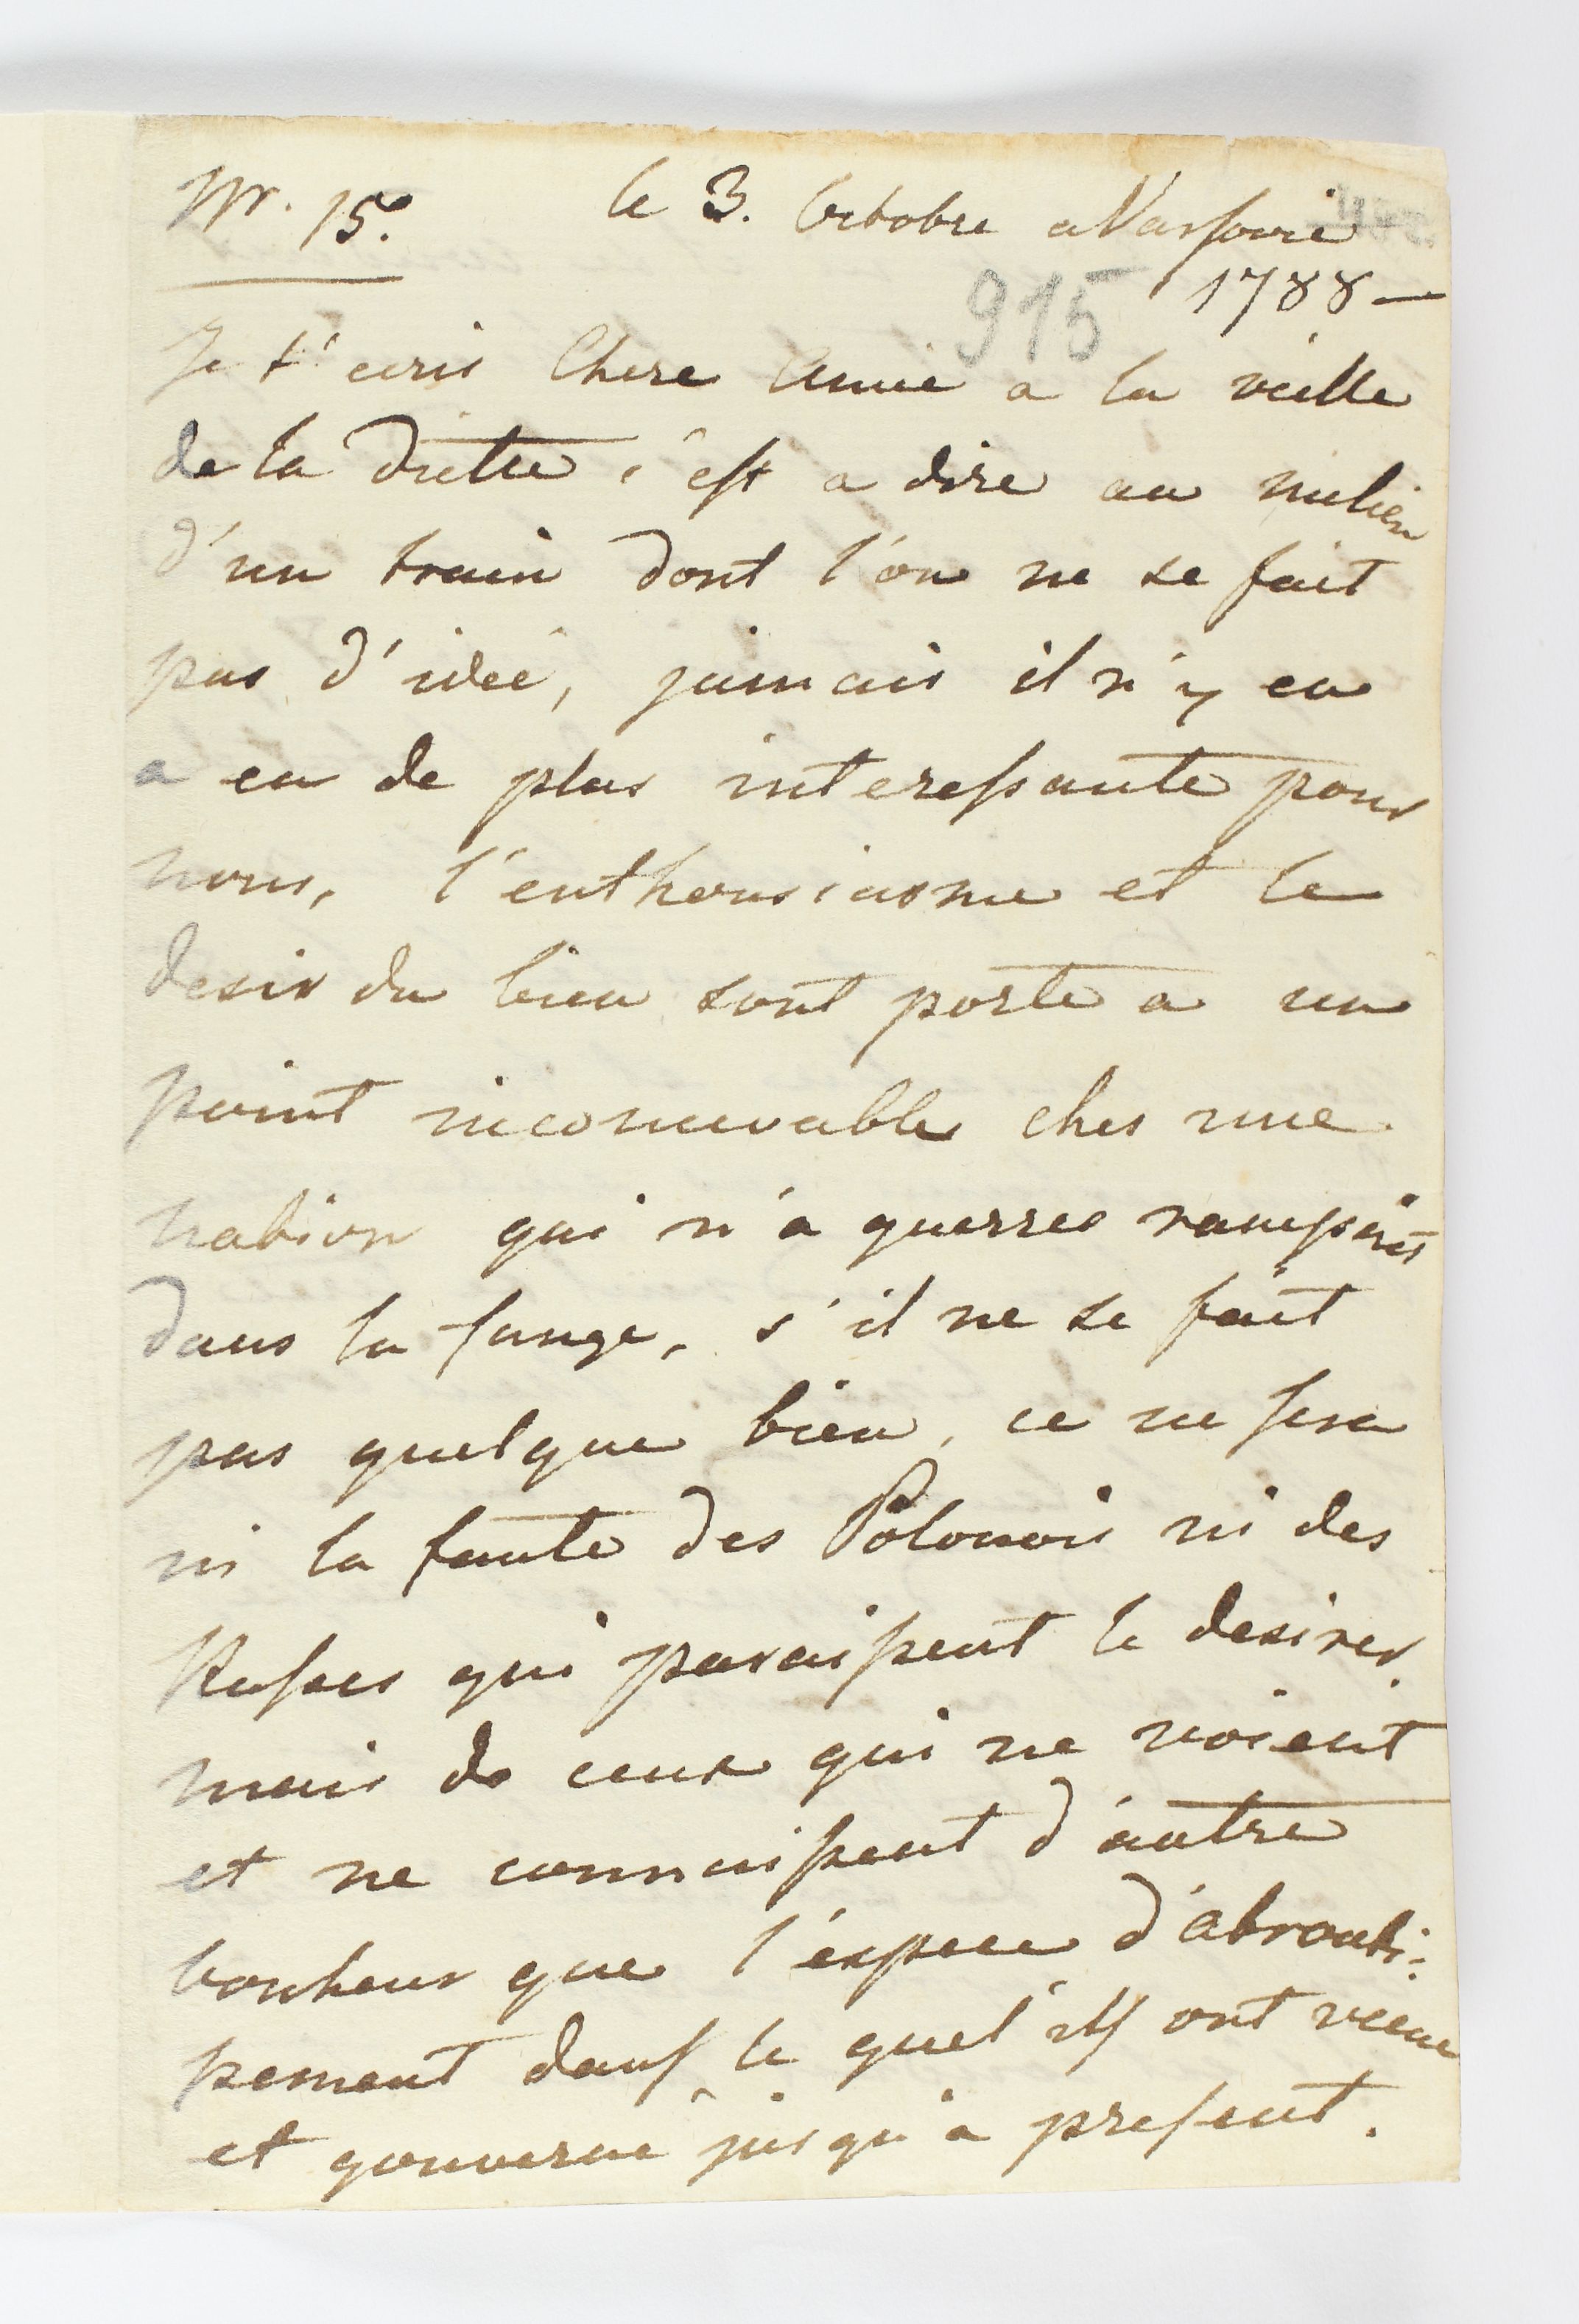 Nr. 15.
le 3. Octobre a Varsovie
1788 —
915
Je t'ecris Chere Amie a la veille
de la Diette c'est a dire au milieu
d'un train dont l'on ne se fait
pas d'idee, jamais il n'y en
a eu de plus interessante pour
nous, l'enthousiasme et le
desir du bien sont porte a un
point inconcevable ches une
nation qui n'a guerres
dans la fange, s'il ne se fait
pas quelque bien, ce ne sera
ni la faute des Polonois ni des
Russes qui paraissent le desirer.
mais de ceux qui ne voient
et ne connaissent d'autre
bonheur que l'espece d'abrouti=
ssement dans le quel ils ont vecu
et gouverné jusqu'a present.